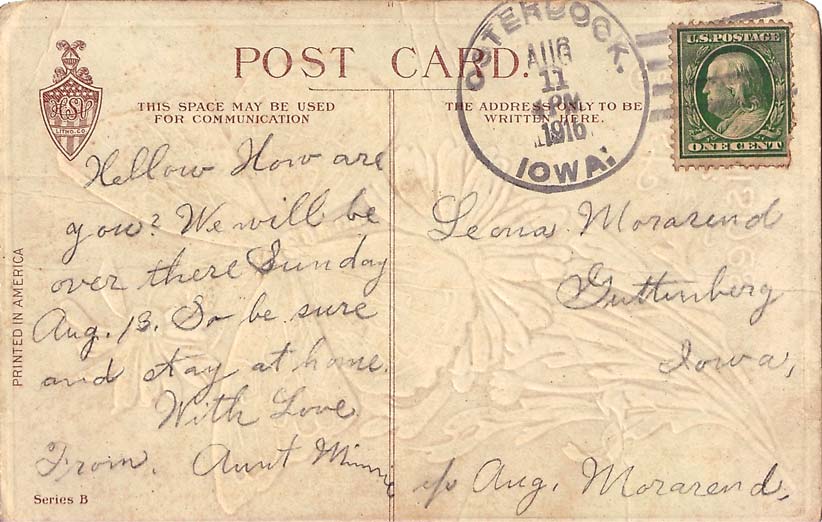 POST CARD.
HSV
LITHO. CO.
THIS SPACE MAY BE USED
FOR COMMUNICATION
THE ADDRESS ONLY TO BE
WRITTEN HERE.
OSTERDOCK,
AUG
11
PM
1916
IOWA.
U.S. POSTAGE
ONE CENT
Hellow How are
you? We will be
over there Sunday
Aug. 13. So be sure
and stay at home.
With Love
From. Aunt Minnie
Leona Morarend
Guttenberg
Iowa,
c/o Aug. Morarend,
PRINTED IN AMERICA
Series B